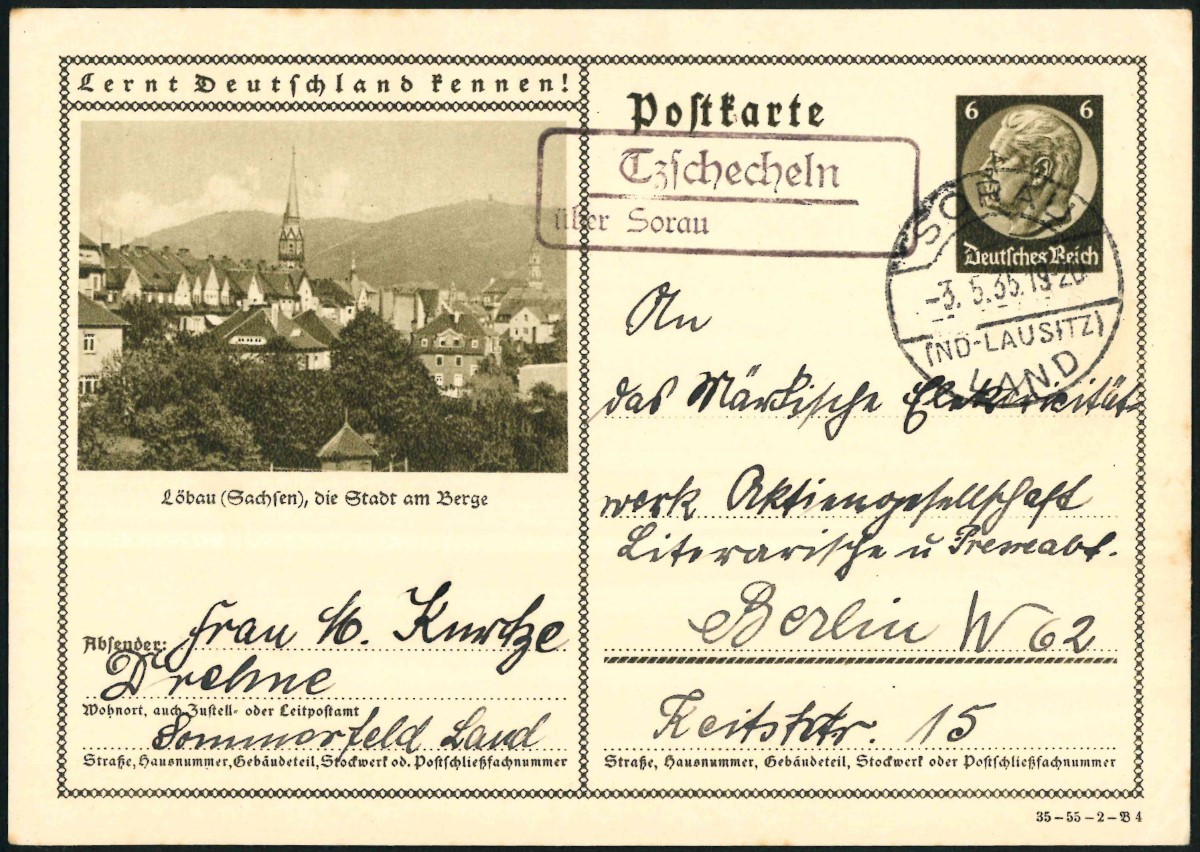 Lernt Deutschland kennen!
Löbau (Sachsen), die Stadt am Berge
Absender: Frau M. Kurtze
Drehne
Wohnort, auch Zustell- oder Leitpostamt
Sommerfeld Land
Straße, Hausnummer, Gebäudeteil, Stockwerk od. Postschließfachnummer
Postkarte
Tzschecheln
über Sorau
6 6
Deutsches Reich
SORAU
-3.5.35.19 20
(ND-LAUSITZ)
LAND
An
das Märkische Elektricität
werk Aktiengesellschaft
Literarische u
Berlin W 62
15
Straße, Hausnummer, Gebäudeteil, Stockwerk oder Postschließfachnummer
35-55-2-B 4